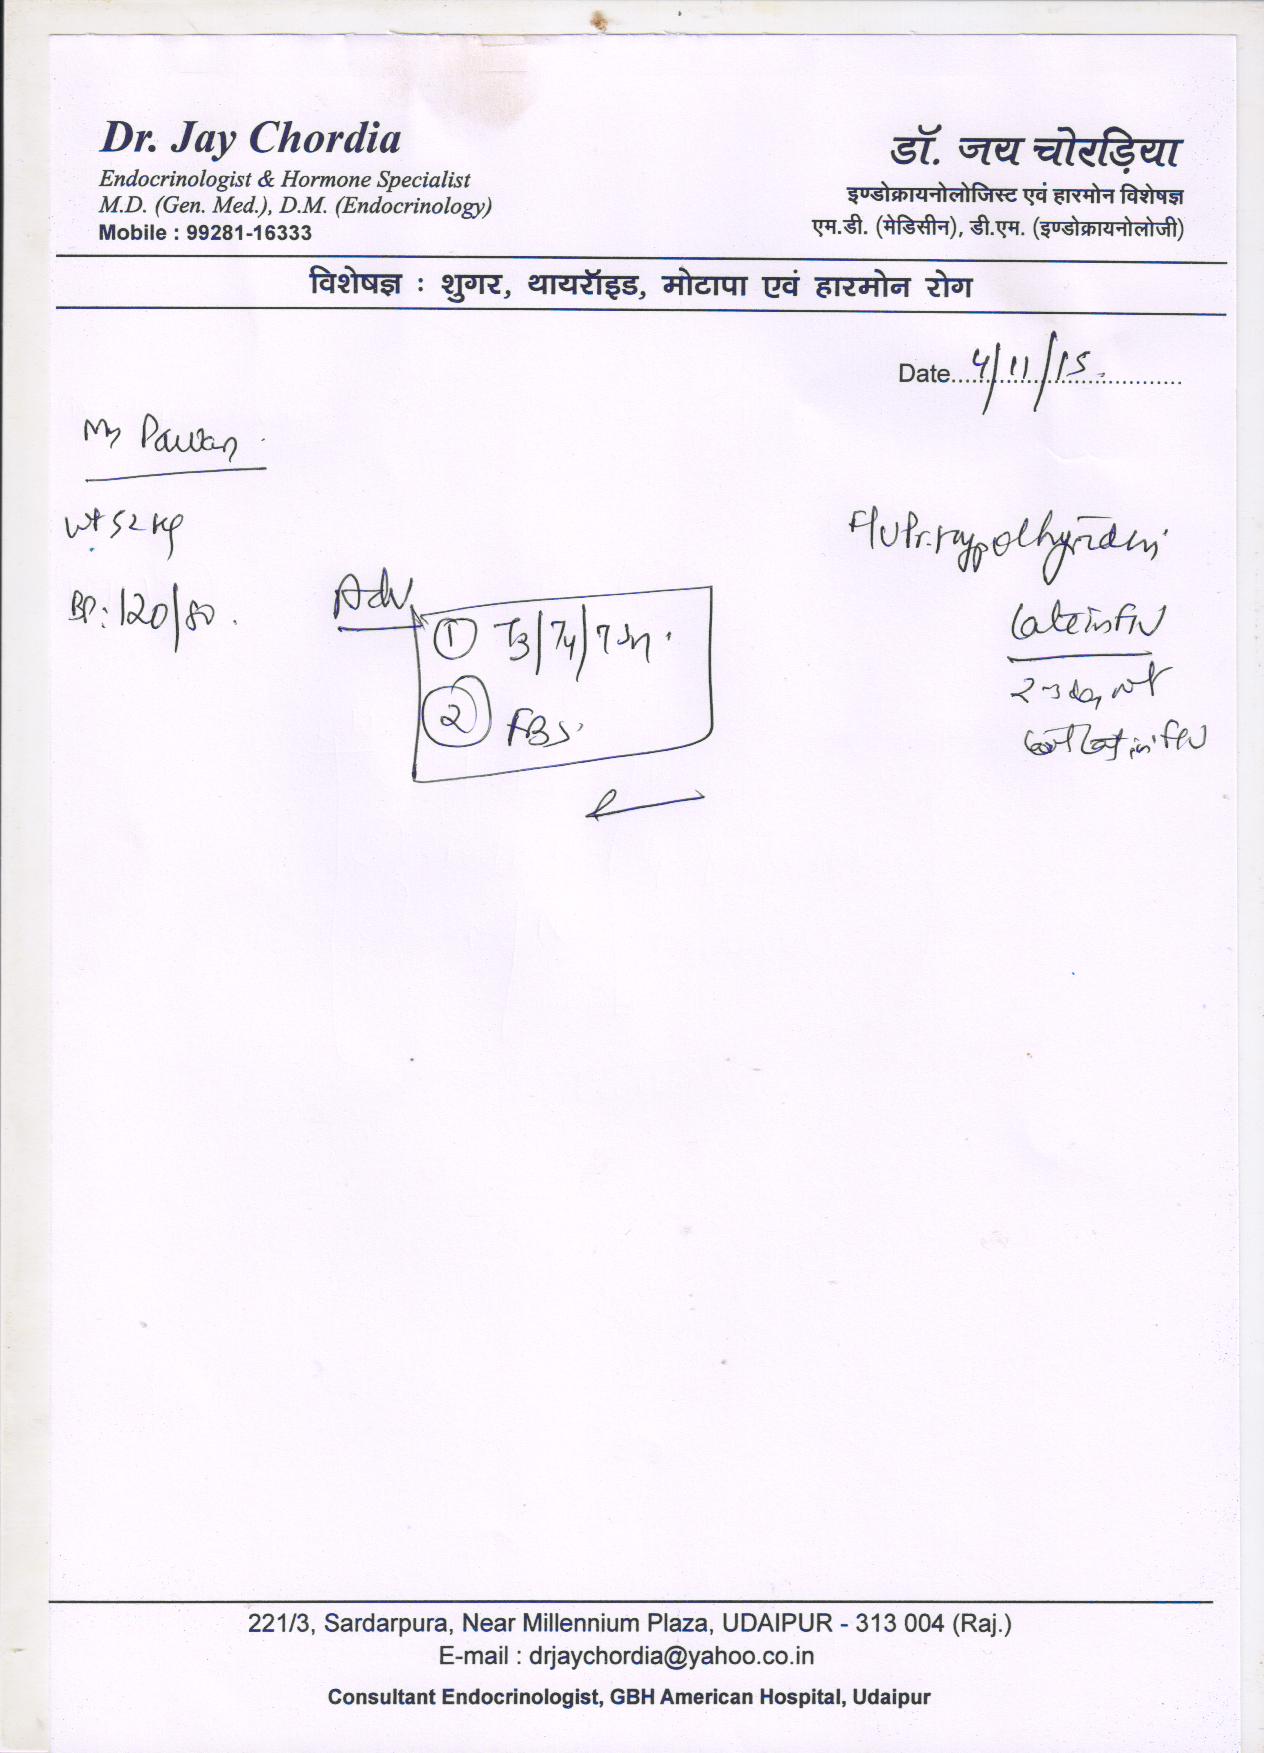 Dr. Jay Chordia
Endocrinologist & Hormone Specialist
M.D. (Gen. Med.), D.M. (Endocrinology)
Mobile : 99281-16333
डॉ. जय चोरड़िया
इण्डोक्रायनोलोजिस्ट एवं हारमोन विशेषज्ञ
एम.डी. (मेडिसीन), डी.एम. (इण्डोक्रायनोलोजी)
विशेषज्ञ : शुगर, थायरॉइड, मोटापा एवं हारमोन रोग
Date 4/11/15
Pawan
Wt 52 kg
BP: 120/80
Adv
① T3/T4/TSH
② FBS
late in F/U
2-3 day
in F/U
221/3, Sardarpura, Near Millennium Plaza, UDAIPUR - 313 004 (Raj.)
E-mail : drjaychordia@yahoo.co.in
Consultant Endocrinologist, GBH American Hospital, Udaipur